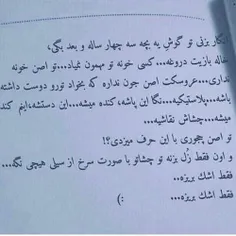 بزنی تو گوشِ یه بچه سه چهار ساله و بعد بگی،
خاله بازیت دروغه...کسی خونه تو مهمون نمیاد...تو اصن خونه
نداری...عروسکت اصن جون نداره که بخواد تورو دوست داشته
باشه...پلاستیکیه...نگا این پاشه،کنده میشه...این دستشه،اینم کنده
میشه...چشاش نقاشیه...
تو اصن چجوری با این حرف میزدی؟!
و اون فقط زُل بزنه تو چشاتو با صورت سرخ از سیلی هیچی نگه...
فقط اشک بریزه..
فقط اشک بریزه.... :)